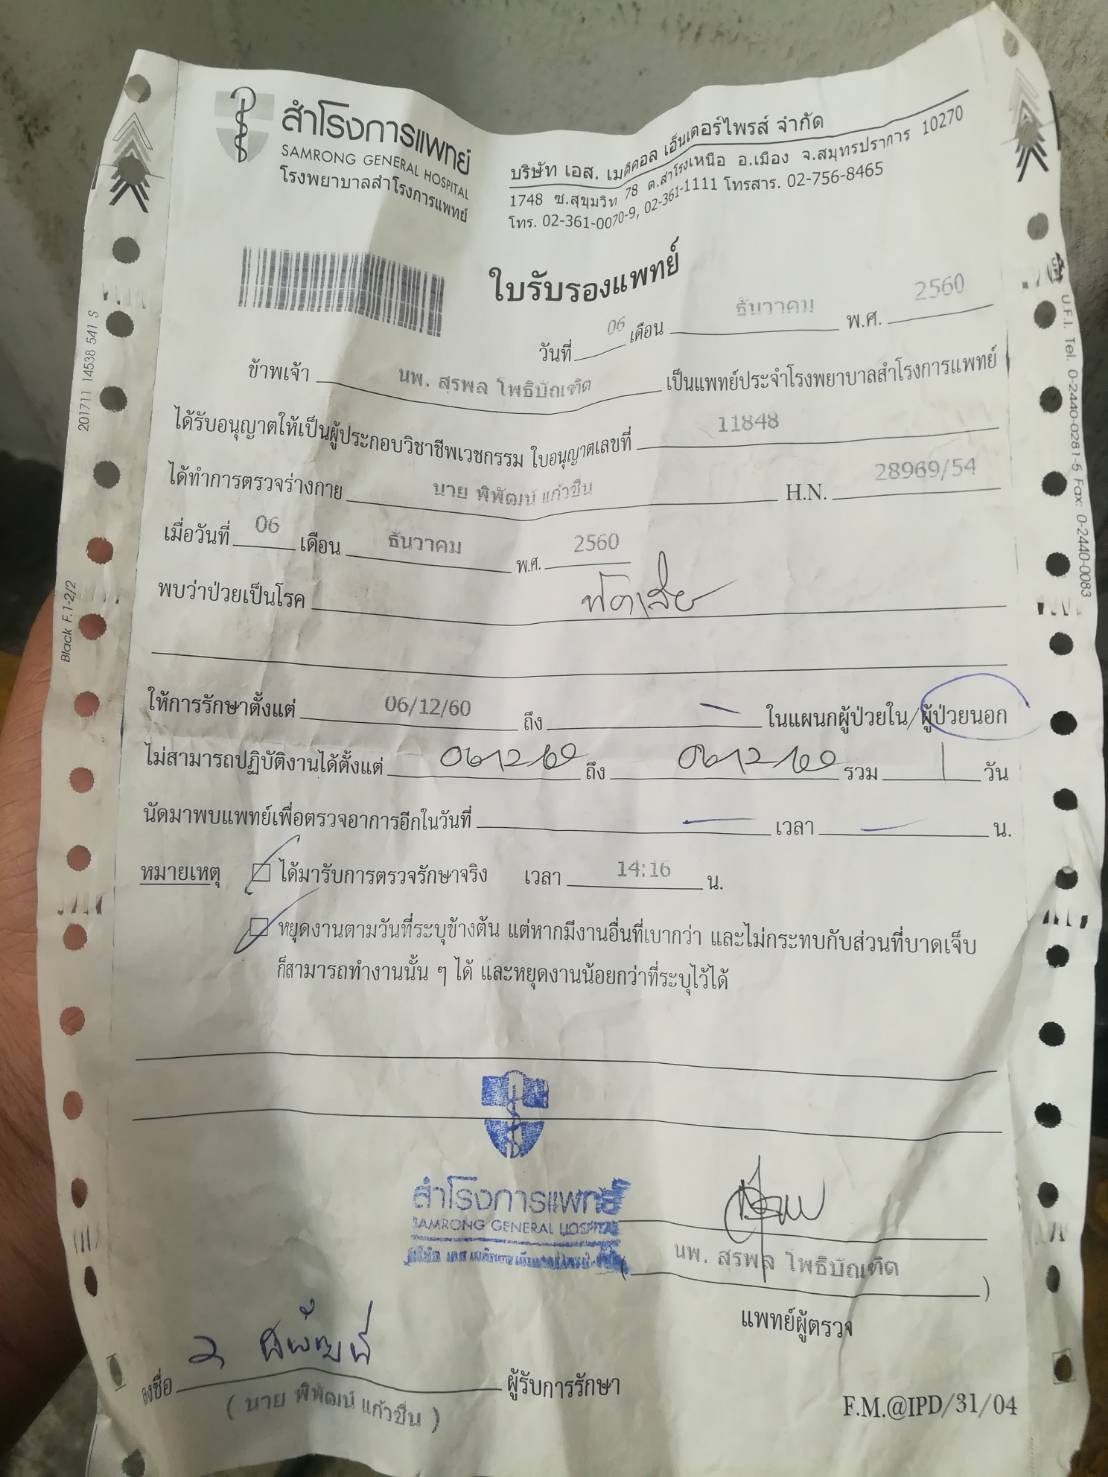 สำโรงการแพทย์
SAMRONG GENERAL HOSPITAL
โรงพยาบาลสำโรงการแพทย์
บริษัท เอส. เมดิคอล เอ็นเตอร์ไพรส์ จำกัด
1748 ซ.สุขุมวิท 78 ต.สำโรงเหนือ อ.เมือง จ.สมุทรปราการ 10270
โทร. 02-361-0070-9, 02-361-1111 โทรสาร. 02-756-8465
ใบรับรองแพทย์
วันที่ 06 เดือน ธันวาคม พ.ศ. 2560
ข้าพเจ้า นพ. สรพล โพธิบัณฑิต เป็นแพทย์ประจำโรงพยาบาลสำโรงการแพทย์
ได้รับอนุญาตให้เป็นผู้ประกอบวิชาชีพเวชกรรม ใบอนุญาตเลขที่ 11848
ได้ทำการตรวจร่างกาย นาย พิพัฒน์ แก้วชื่น H.N. 28969/54
เมื่อวันที่ 06 เดือน ธันวาคม พ.ศ. 2560
พบว่าป่วยเป็นโรค
ให้การรักษาตั้งแต่ 06/12/60 ถึง - ในแผนกผู้ป่วยใน/ผู้ป่วยนอก
ไม่สามารถปฏิบัติงานได้ตั้งแต่ 06/12/60 ถึง 06/12/60 รวม 1 วัน
นัดมาพบแพทย์เพื่อตรวจอาการอีกในวันที่ - เวลา - น.
หมายเหตุ ได้มารับการตรวจรักษาจริง เวลา 14:16 น.
หยุดงานตามวันที่ระบุข้างต้น แต่หากมีงานอื่นที่เบากว่า และไม่กระทบกับส่วนที่บาดเจ็บ
ก็สามารถทำงานนั้น ๆ ได้ และหยุดงานน้อยกว่าที่ระบุไว้ได้
สำโรงการแพทย์
SAMRONG GENERAL HOSPITAL
(นพ. สรพล โพธิบัณฑิต)
แพทย์ผู้ตรวจ
ลงชื่อ พิพัฒน์ ผู้รับการรักษา
( นาย พิพัฒน์ แก้วชื่น )
F.M.@IPD/31/04
201711 14538 541 S
Black F.1-2/2
U.F.I. Tel. 0-2440-0281-5 Fax: 0-2440-0083